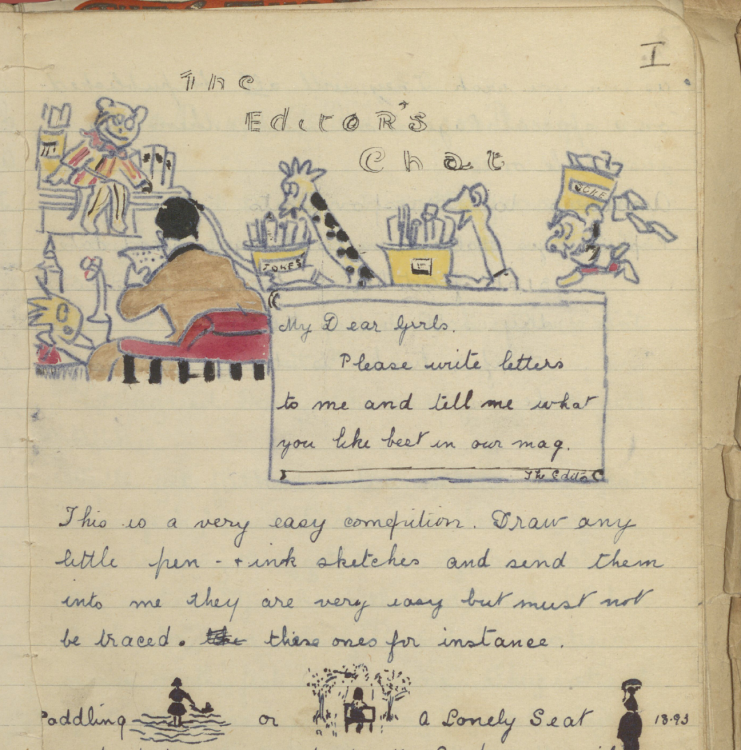 I
The
EditoR's
Chat
JOKES
My Dear Girls.
Please write letters
to me and tell me what
you like best in our mag.
This is a very easy compitition. Draw any
little pen - + ink sketches and send them
into me they are very easy but must not
be traced. these ones for instance.
Paddling or a Lonely Seat 18.93